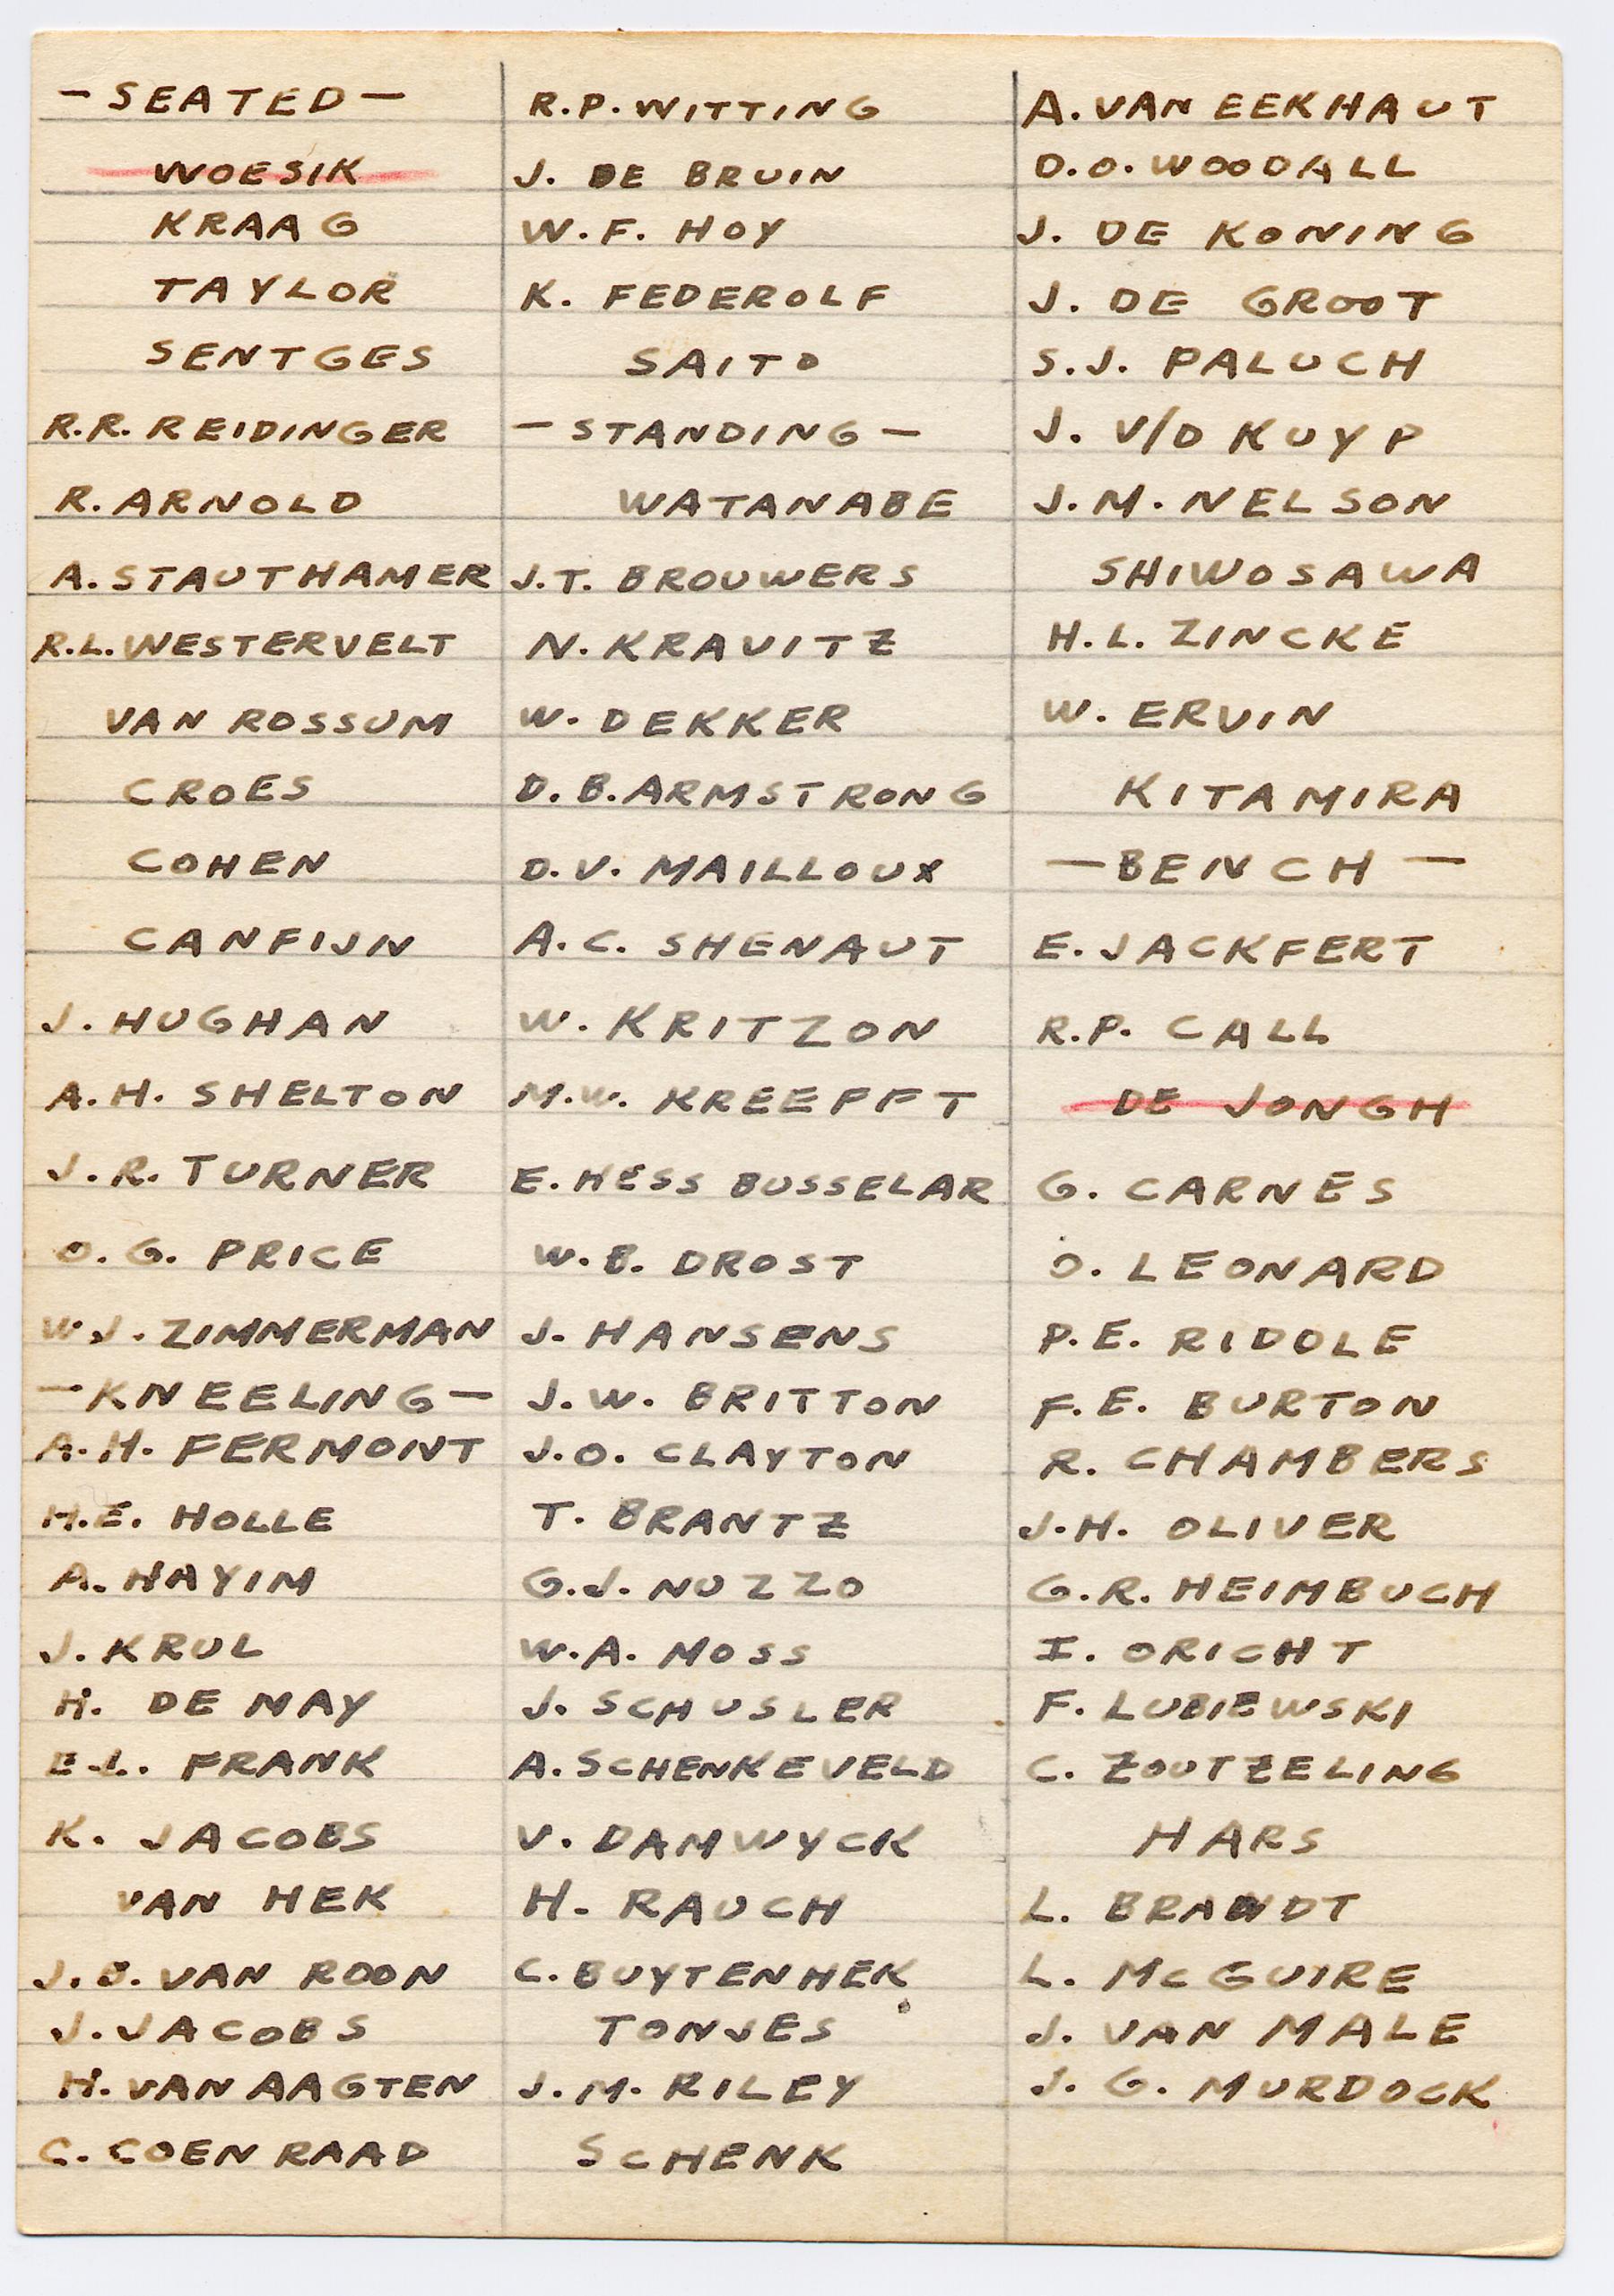 - SEATED -
WOESIK
KRAAG
TAYLOR
SENTGES
R.R. REIDINGER
R. ARNOLD
A. STAUTHAMER
R.L. WESTERVELT
VAN ROSSUM
CROES
COHEN
CANFIJN
J. HUGHAN
A.H. SHELTON
J.R. TURNER
O.G. PRICE
W.J. ZIMMERMAN
- KNEELING -
A.H. FERMONT
H.E. HOLLE
A. HAYIM
J. KRUL
H. DE MAY
E.L. FRANK
K. JACOBS
VAN HEK
J.B. VAN ROON
J. JACOBS
H. VAN AAGTEN
C. COENRAAD
R.P. WITTING
J. DE BRUIN
W.F. HOY
K. FEDEROLF
SAITO
- STANDING -
WATANABE
J.T. BROUWERS
N. KRAVITZ
W. DEKKER
D.B. ARMSTRONG
D.V. MAILLOUX
A.C. SHENAUT
W. KRITZON
M.W. KREEFFT
E. HESS BUSSELAR
W.B. DROST
J. HANSENS
J.W. BRITTON
J.O. CLAYTON
T. BRANTZ
G.J. NUZZO
W.A. MOSS
J. SCHUSLER
A. SCHENKEVELD
V. DAMWYCK
H. RAUCH
C. BUYTENHEK
TONJES
J.M. RILEY
SCHENK
A. VAN EEKHAUT
D.O. WOODALL
J. DE KONING
J. DE GROOT
S.J. PALUCH
J. V/D KUYP
J.M. NELSON
SHIWOSAWA
H.L. ZINCKE
W. ERVIN
KITAMIRA
- BENCH -
E. JACKFERT
R.P. CALL
DE JONGH
G. CARNES
O. LEONARD
P.E. RIDDLE
F.E. BURTON
R. CHAMBERS
J.H. OLIVER
G.R. HEIMBUCH
I. ORICHT
F. LUBIEWSKI
C. ZOUTZELING
HARS
L. BRANDT
L. McGUIRE
J. VAN MALE
J.G. MURDOCK